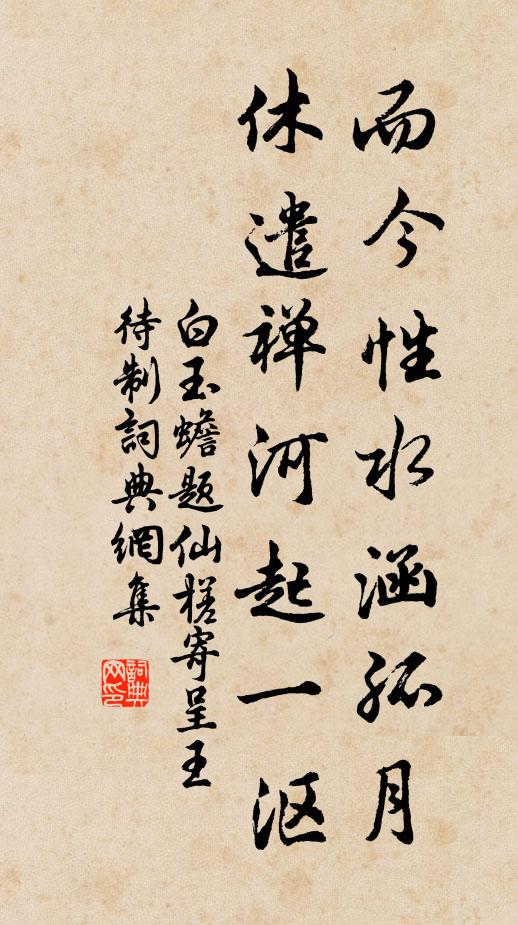 而今性水涵孤月
休遣禅河起一沤
白玉蟾题仙槎寄呈王
待制詞典網集
詞典网印